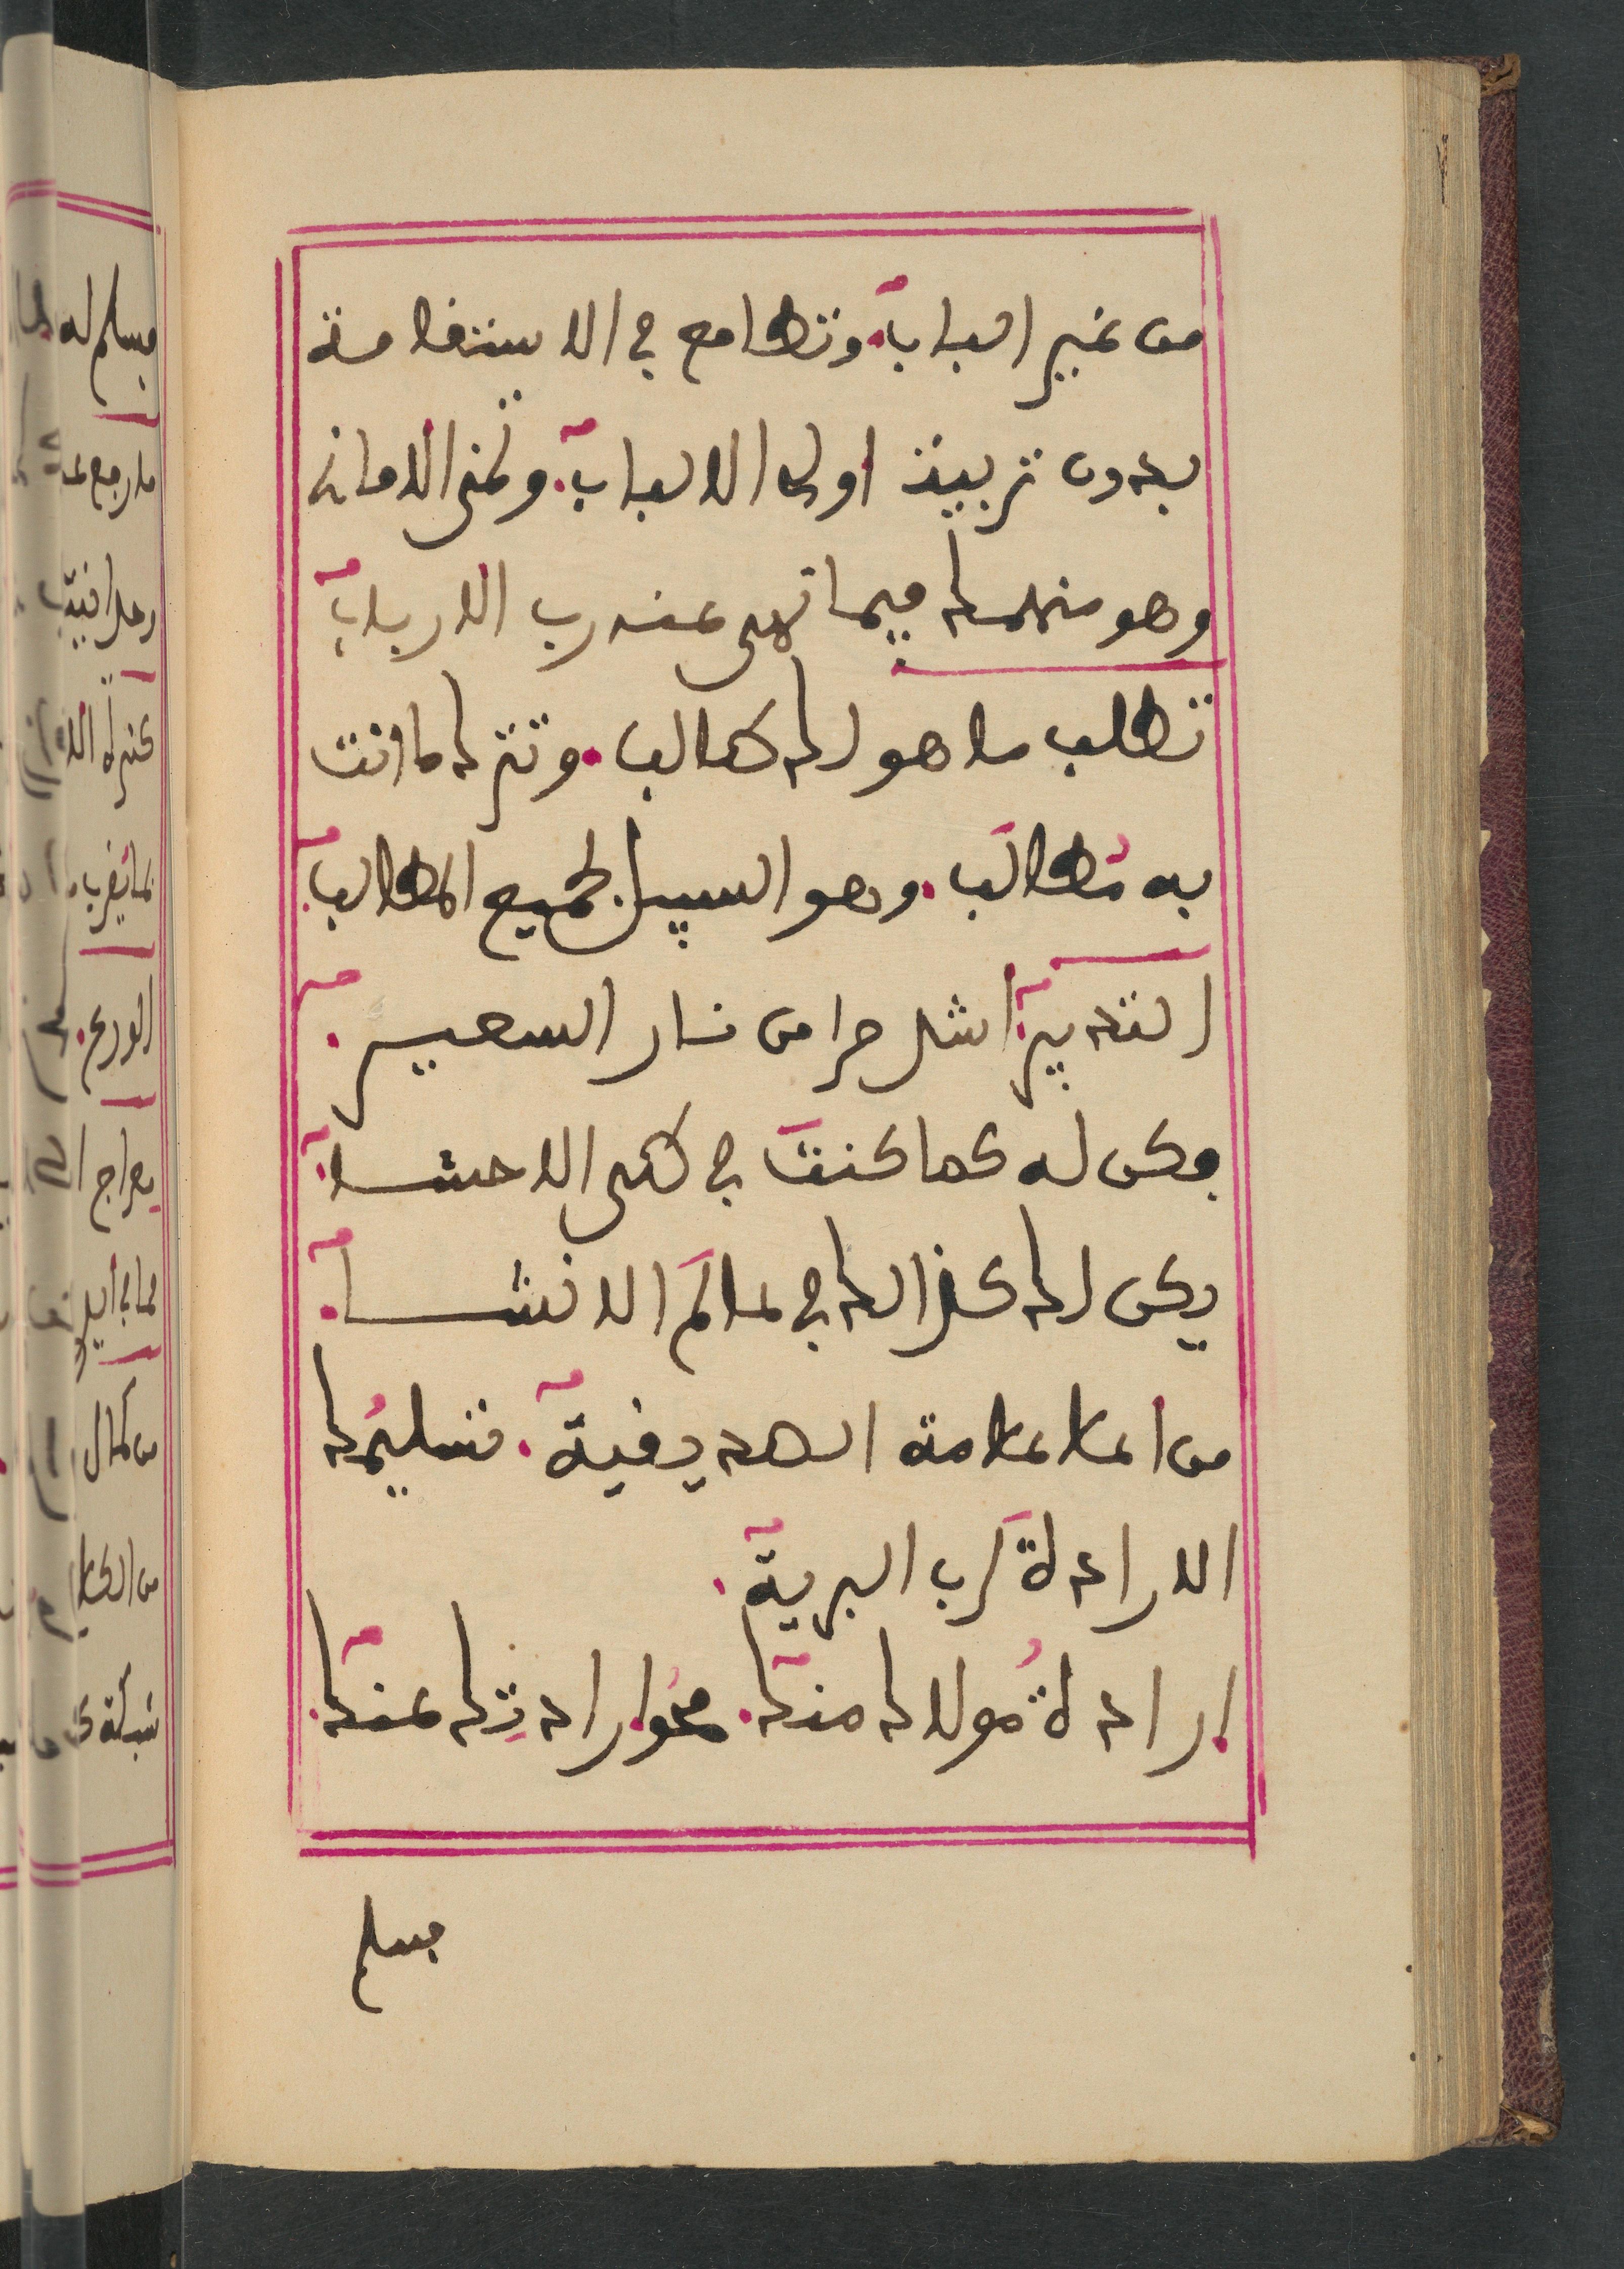 من غير الباب. وتطامع في الاستقامة
بدون تربية اولى الالباب. وتمنى الامان
وهو منهمك فيما نهى عنه رب الارباب
تطلب ما هو لك طالب. وتترك ما انت
به مُطالَب. وهو السبيل لجميع المطالب.
التدبير. اشد حرا من نار السعير.
فكن له كما كنتَ في طي الاحشا.
يكن لك كذالك في عالَم الانشا.
من اعلا علامة الصديقية. تسليمُك
الارادة لرب البرية.
ارادةُ مولاك منك. محوُ ارادتِك عنك.
فسلم
فسلم له
ما رجع
من كمال
الورع.
معراج